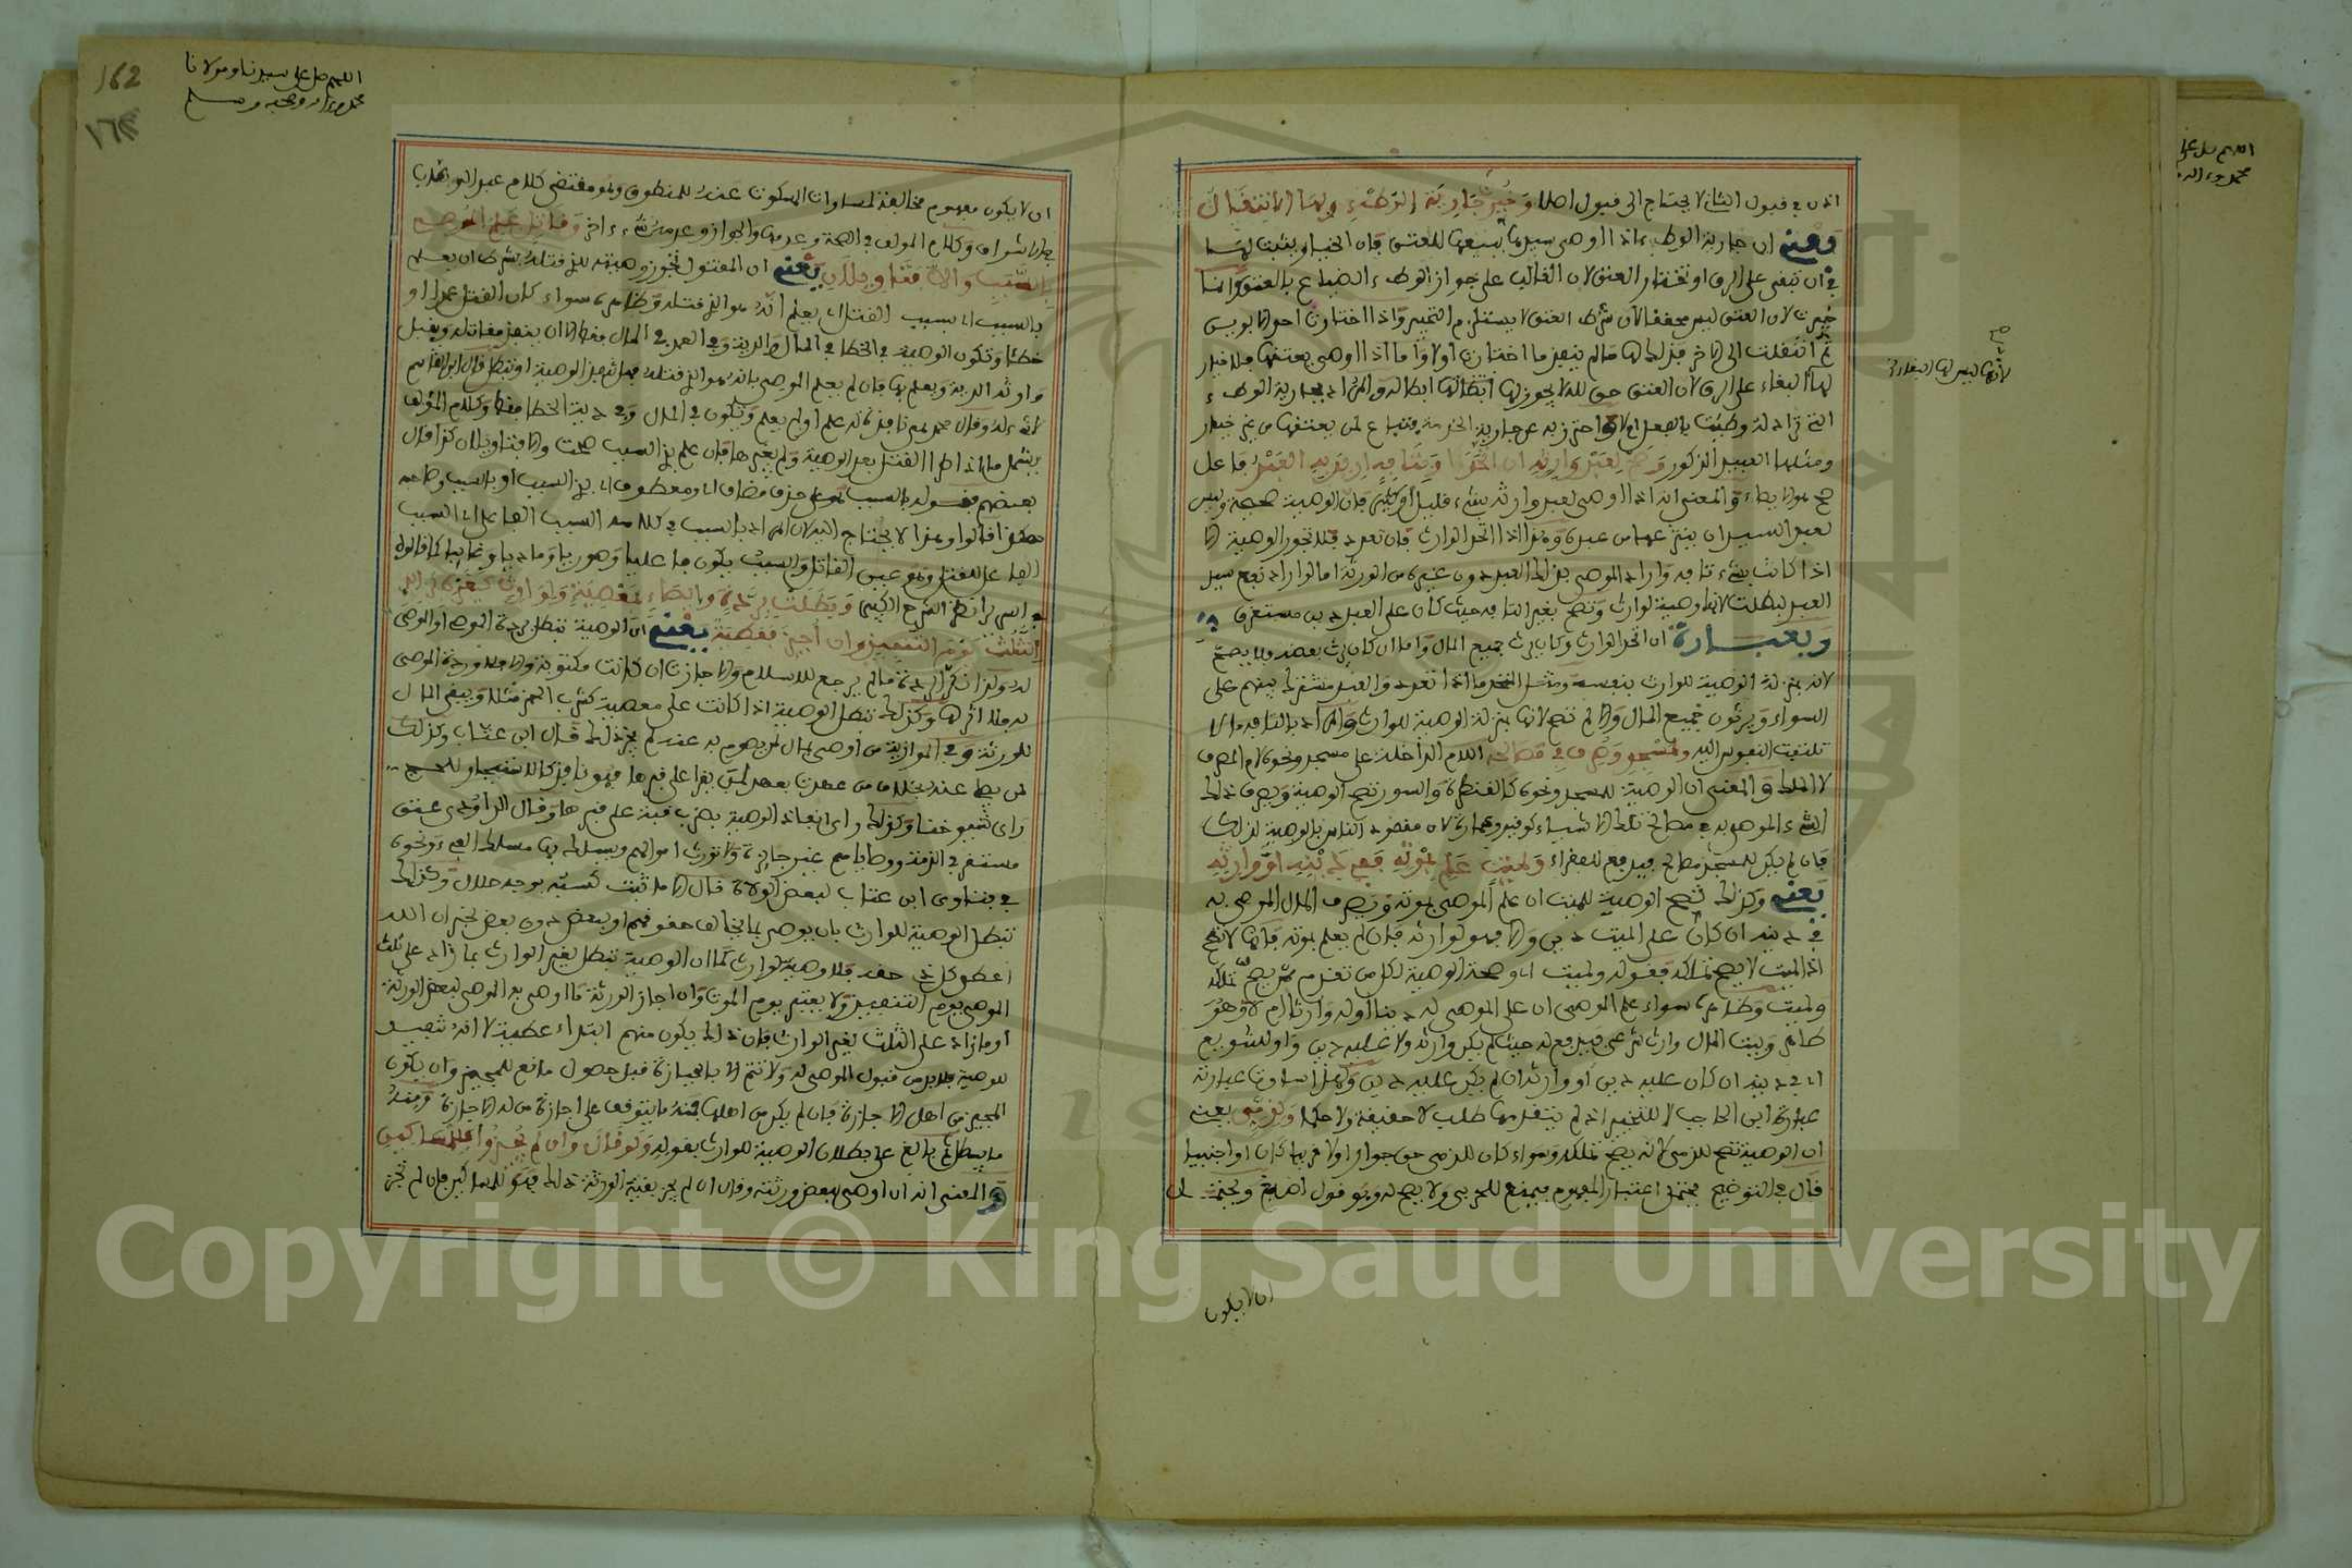 اذن في قبول الشيء لا يحتاج الى قبول اصلا وخيرت جارية الوطء ولها الانتقال
يعني ان جارية الوطء اذا اوصى سيدها ببيعها للعتق فان الخيار يثبت لها
في ان تبقى على الرق او تختار العتق لان الغالب على جواز الوطء الضياع بالعتق وانما
خيرت لان العتق ليس محققا لان شرط العتق لا يستلزم التخيير واذا اختارت احد الامرين
ثم انتقلت الى الاخر فذلك لها ما لم ينفذ ما اختارت اولا واما اذا اوصى بعتقها فلا خيار
لها البقاء على الرق لان العتق حق لله لا يجوز لها ابطاله والمراد بجارية الوطء
التي تراد له وطئت بالفعل ام لا واحترز به عن جارية الخدمة فتباع لمن يعتقها من غير خيار
ومثلها العبد الذكور وصح لعبد وارثه ان اتحد او بتافه اريد به العبد فاعل
صح هو الايصاء والمعنى انه اذا اوصى لعبد وارثه بشيء قليل او كثير فان الوصية صحيحة وليس
لعبد السيد ان ينتزعها من عبده وهذا اذا اتحد الوارث فان تعدد فلا تجوز الوصية الا
اذا كانت بشيء تافه واراد الموصي بذلك العبد دون غيره من الورثة اما لو اراد نفع سيد
العبد لبطلت لانها وصية لوارث وتصح بغير التافه حيث كان على العبد دين مستغرق
وبعبارة ان اتحد الوارث وكان يرث جميع المال واما ان كان يرث بعضه فلا يصح
لانه بمنزلة الوصية للوارث بنفسه ومثل المتحد ما اذا تعدد والعبد مشترك بينهم على
السواء ويرثون جميع المال والا لم تصح لانها بمنزلة الوصية للوارث والمراد بالتافه ما لا
تلتفت النفوس اليه ولمسجد وصرف في مصالحه اللام الداخلة على مسجد ونحوه لام المصرف
لا الملك والمعنى ان الوصية للمسجد ونحوه كالقنطرة والسور تصح الوصية ويصرف ذلك
الشيء الموصى به في مصالح تلك الاشياء كوقيد وعمارة لان مقصد الناس بالوصية لذلك
فان لم يكن للمسجد مصالح فيدفع للفقراء ولميت علم بموته ففي دينه او وارثه
يعني وكذلك تصح الوصية للميت ان علم الموصي بموته ويصرف المال الموصى به
في دينه ان كان على الميت دين والا فهو لوارثه فان لم يعلم بموته فانها لا تصح
اذ الميت لا يصح تملكه فقوله ولميت اي وصحت الوصية لكل من تقدم ممن يصح تملكه
ولميت وظاهره سواء علم الموصي ان على الموصى له دينا او له وارثا ام لا وهو
ظاهر وبيت المال وارث شرعي فيدفع له حيث لم يكن وارث ولا عليه دين
اي في دينه ان كان عليه دين او وارثه ان لم يكن عليه دين وهذا ساوت عبارته
عبارة ابن الحاجب لا للتخيير اذ لم يتقدمها طلب لا حقيقة ولا حكما ولذمي يعني
ان الوصية تصح للذمي لانه يصح تملكه وسواء كان للذمي حق جوار او لا قريبا كان او اجنبيا
قال في التوضيح يحتمل اعتبار المفهوم فيمنع للحربي ولا يصح له وهو قول اصبغ ويحتمل
ان لا يكون
لانها ليس لها البقاء
صح
اللهم صل على
محمد وءاله
اللهم صل على سيدنا ومولانا
محمد وءاله وصحبه وسلم
162
ان لا يكون مفهوم مخالفة لمساواة المسكوت عنه للمنطوق وهو مقتضى كلام عبد الوهاب
في الاشراف وكلام المؤلف في الصحة وعدمها والجواز وعدمه شيء اخر وقاتل علم الموصي
بالسبب والا فتاويلان يعني ان المقتول تجوز وصيته للذي قتله بشرط ان يعلم
بالسبب اي بسبب القتل اي يعلم انه هو الذي قتله وظاهره سواء كان القتل عمدا او
خطئا وتكون الوصية في الخطا في المال والدية وفي العمد في المال فقط الا ان ينفذ مقاتله ويقبل
وارثه الدية ويعلم بها فان لم يعلم الموصي بانه هو الذي قتله فهل تصح الوصية او تبطل قال ابن القاسم
لا شيء له وقال محمد هي نافذة له علم او لم يعلم وتكون في المال وفي دية الخطا فقط وكلام المؤلف
يشمل ما اذا طرا القتل بعد الوصية ولم يغيرها فان علم بذي السبب صحت والا فتاويلان كذا قال
بعضهم فقوله بالسبب على حذف مضاف او معطوف اي بذي السبب او بالسبب وصاحبه
هكذا قالوا وهذا لا يحتاج اليه لان المراد بالسبب في كلامه السبب الفاعل اي السبب
الفاعل للقتل وهو عين القاتل والسبب يكون فاعليا وصوريا وماديا وغائيا كما قالوه
في انظر الشرح الكبير وبطلت بردته وايصاء بمعصية ولوارث كغيره بزائد
الثلث يوم التنفيذ وان اجيز فعطية يعني ان الوصية تبطل بردة الموصي او الموصى
له وهذا ان مات في الردة ما لم يرجع للاسلام والا جازت ان كانت مكتوبة والا فلا وردة الموصى
به فلا اثر لها وكذلك تبطل الوصية اذا كانت على معصية كشرب الخمر مثلا ويبقى المال
للورثة وفي الموازية من اوصى بمال لمن يصوم به عنه لم يجز ذلك قال ابن عتاب وكذلك
لمن يصلي عنه بخلاف من عهدت بعهد لمن يقرا على قبرها فهو نافذ كالاستيجار للحج
راى شيوخنا وكذلك راى انفاذ الوصية بضرب قبة على قبرها وقال الداودي عتق
مستغرقي الذمة ووصاياهم غير جائزة ولا تورث اموالهم ويسلك بها مسلك الفيء ونحوه
في فتاوى ابن عتاب لبعض الولاة قال الا ما ثبت كسبه بوجه حلال وكذلك
تبطل الوصية للوارث بان يوصي بما يخالف حقوقهم او لبعض دون بعض لخبر ان الله
اعطى كل ذي حق حقه فلا وصية لوارث كما ان الوصية تبطل لغير الوارث بما زاد على ثلث
الموصي يوم التنفيذ ولا يعتبر يوم الموت وان اجاز الورثة ما اوصى به الموصي لبعض الورثة
او ما زاد على الثلث لغير الوارث فان ذلك يكون منهم ابتداء عطية لا انه تنفيذ
للوصية فلابد من قبول الموصى له ولا تتم الا بالحيازة قبل حصول مانع للمجيز وان يكون
المجيز من اهل الاجازة فان لم يكن من اهلها فمنه ما يتوقف على اجازة من له الاجازة ومنه
ما يبطل ثم بالغ على بطلان الوصية للوارث بقوله ولو قال وان لم يجيزوا فللمساكين
والمعنى انه ان اوصى لبعض ورثته وقال ان لم يجز بقية الورثة ذلك فهو للمساكين فان لم تجز
Copyright © King Saud University